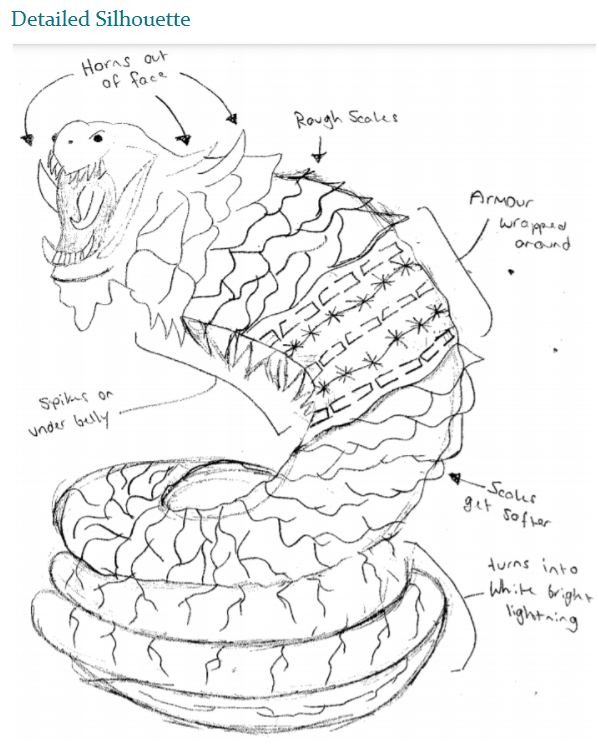 Detailed Silhouette
Horns out
of face
Rough Scales
Armour
wrapped
around
Spikes on
under belly
Scales
get softer
turns into
White bright
lightning